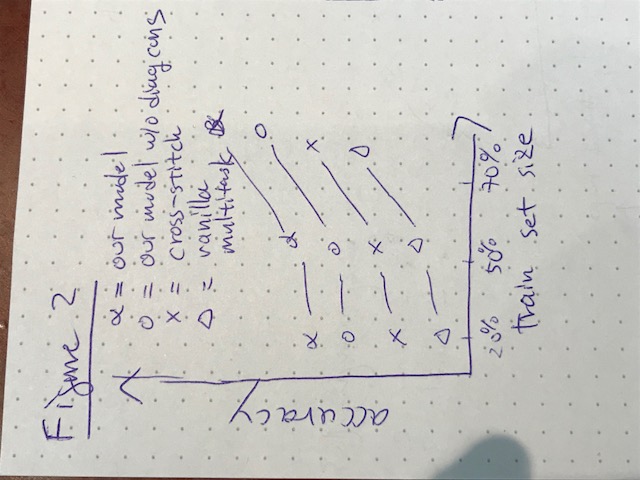 Figure 2
α = our model
o = our model w/o diag cons
x = cross-stitch
Δ = vanilla
multitask
accuracy
20% 50% 70%
train set size